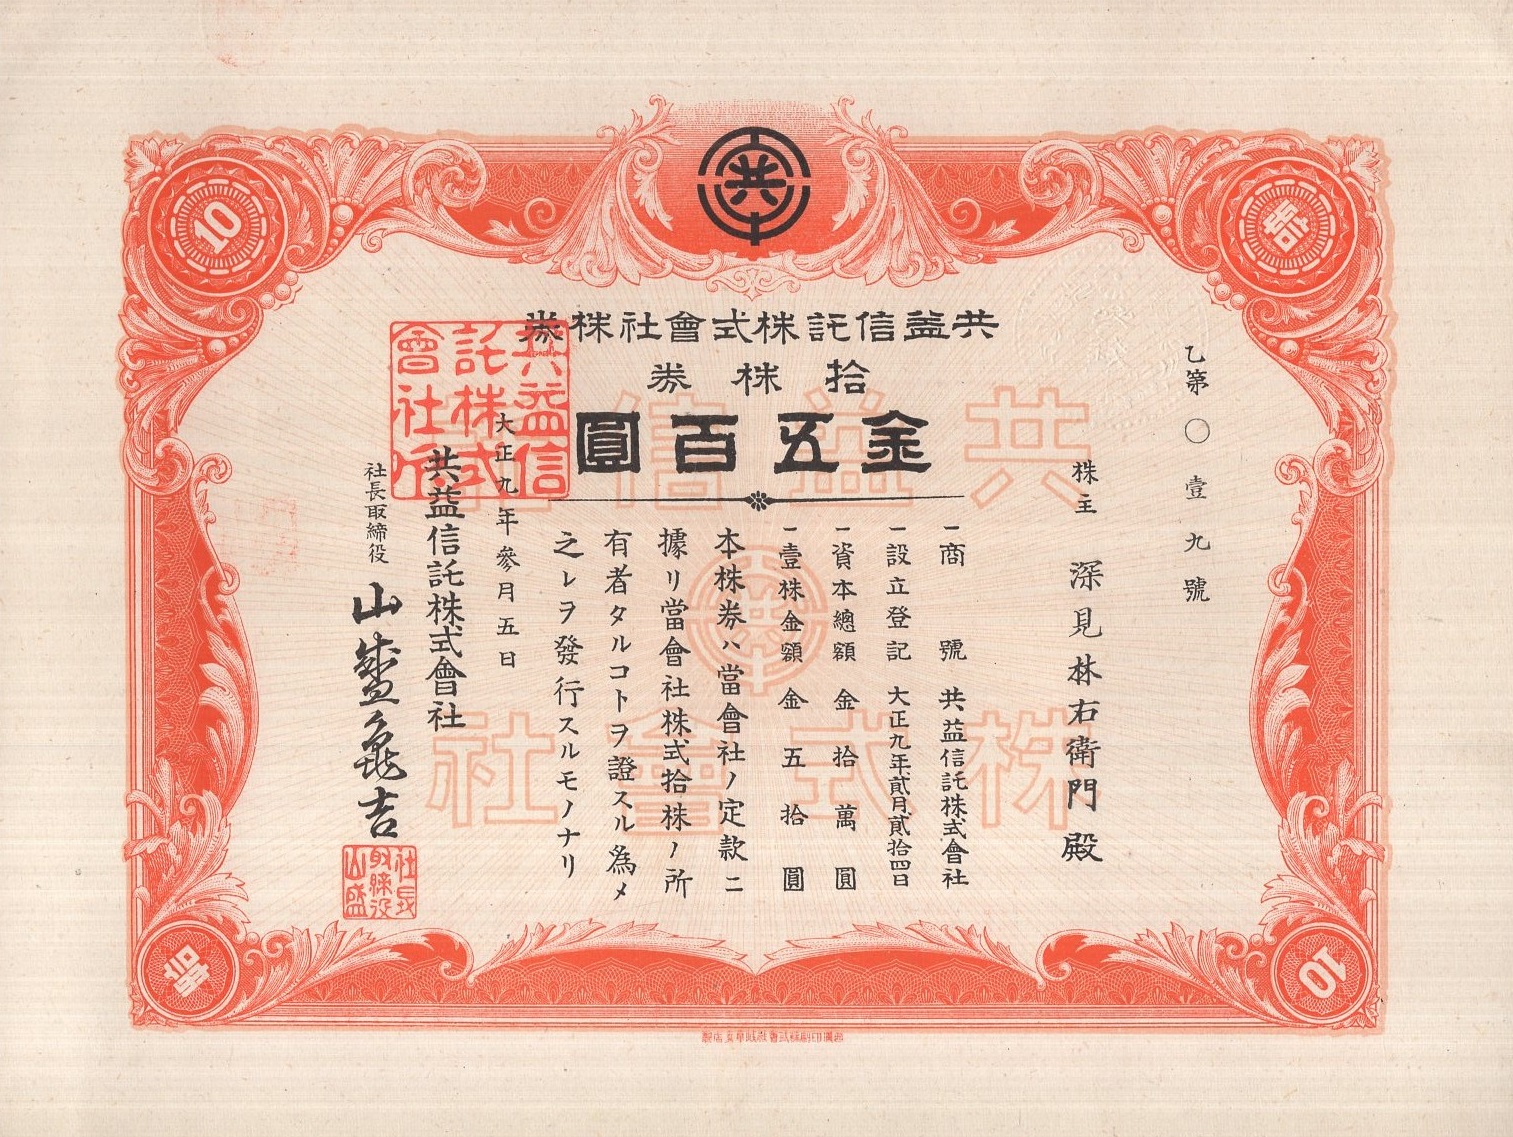 共
10
拾
共益信託株式會社株券
拾株券
金五百圓
乙第〇壹九號
株主 深見林右衛門殿
一商號 共益信託株式會社
一設立登記 大正九年貳月貳拾四日
一資本總額 金拾萬圓
一壹株金額 金五拾圓
本株券ハ當會社ノ定款ニ
據リ當會社株式拾株ノ所
有者タルコトヲ證スル爲メ
之レヲ發行スルモノナリ
大正九年參月五日
共益信託株式會社
社長取締役 山盛亀吉
共益信
託株式
會社印
社長
取締役
山盛
共益信託
株式會社
共
拾
10